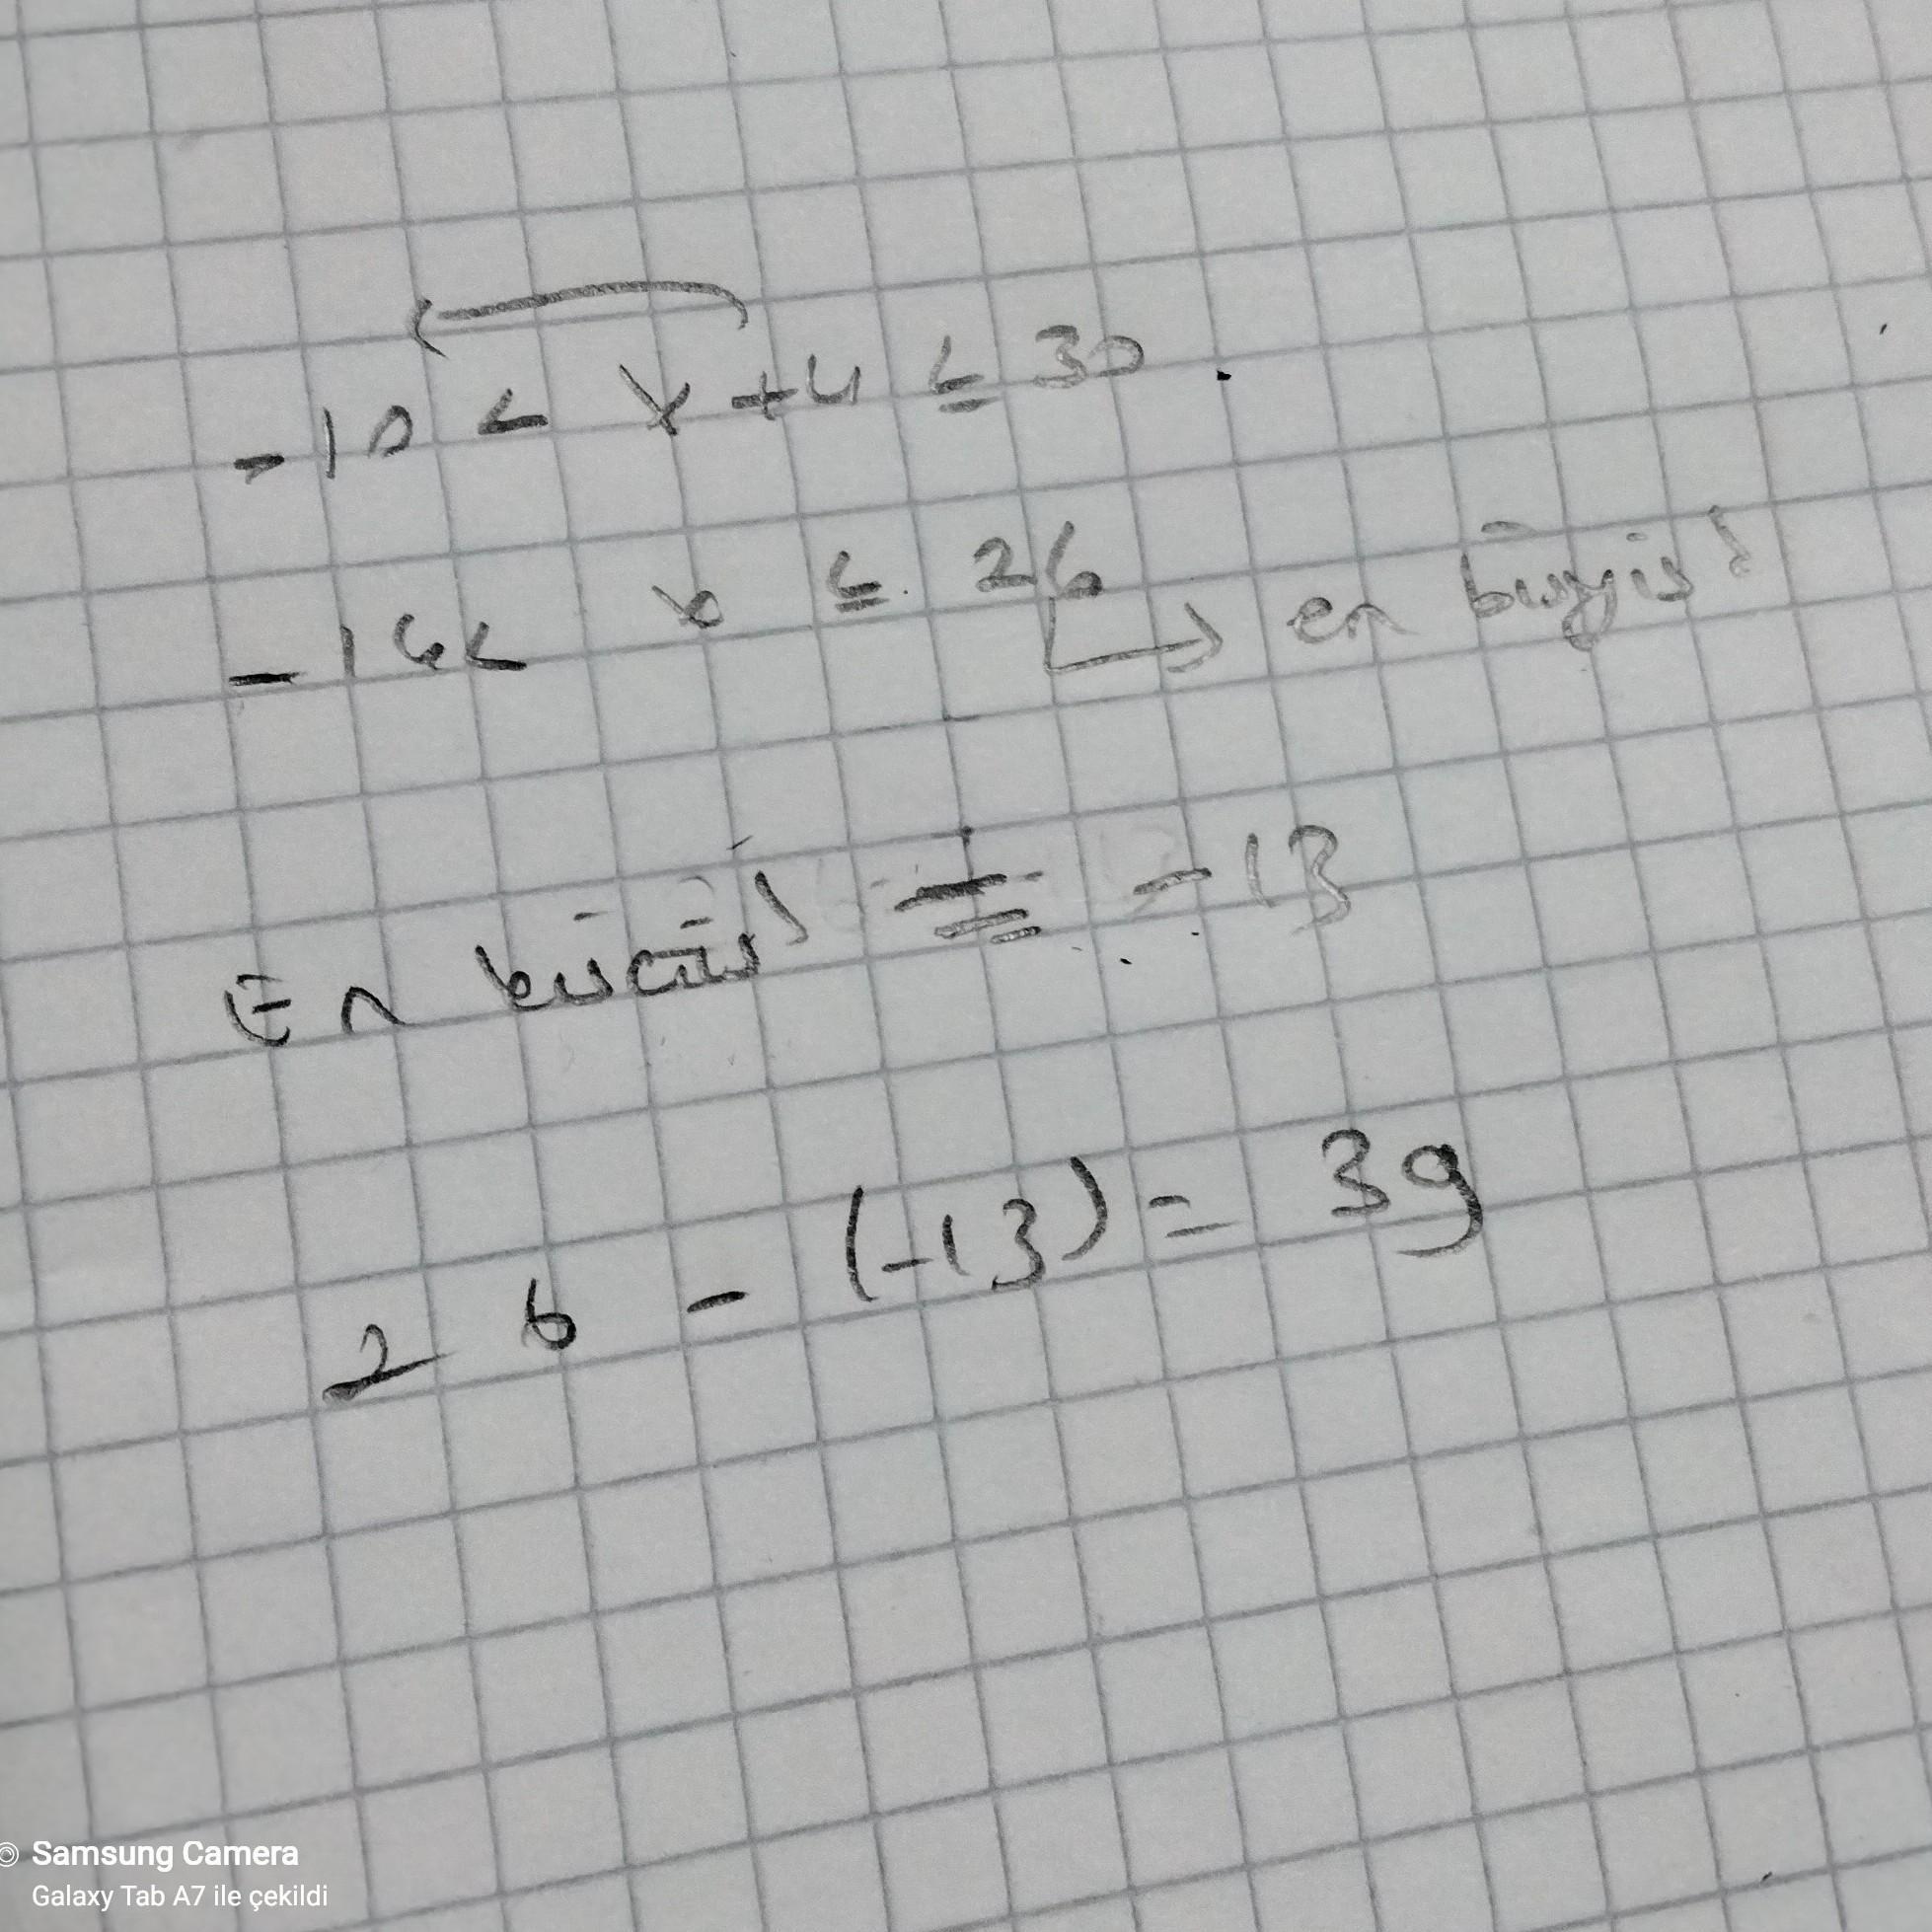 -10 < x +4 ≤ 30
-14 < x ≤ 26 → en büyüğü
En küçüğü = -13
2 6 - (-13) = 39
Samsung Camera
Galaxy Tab A7 ile çekildi